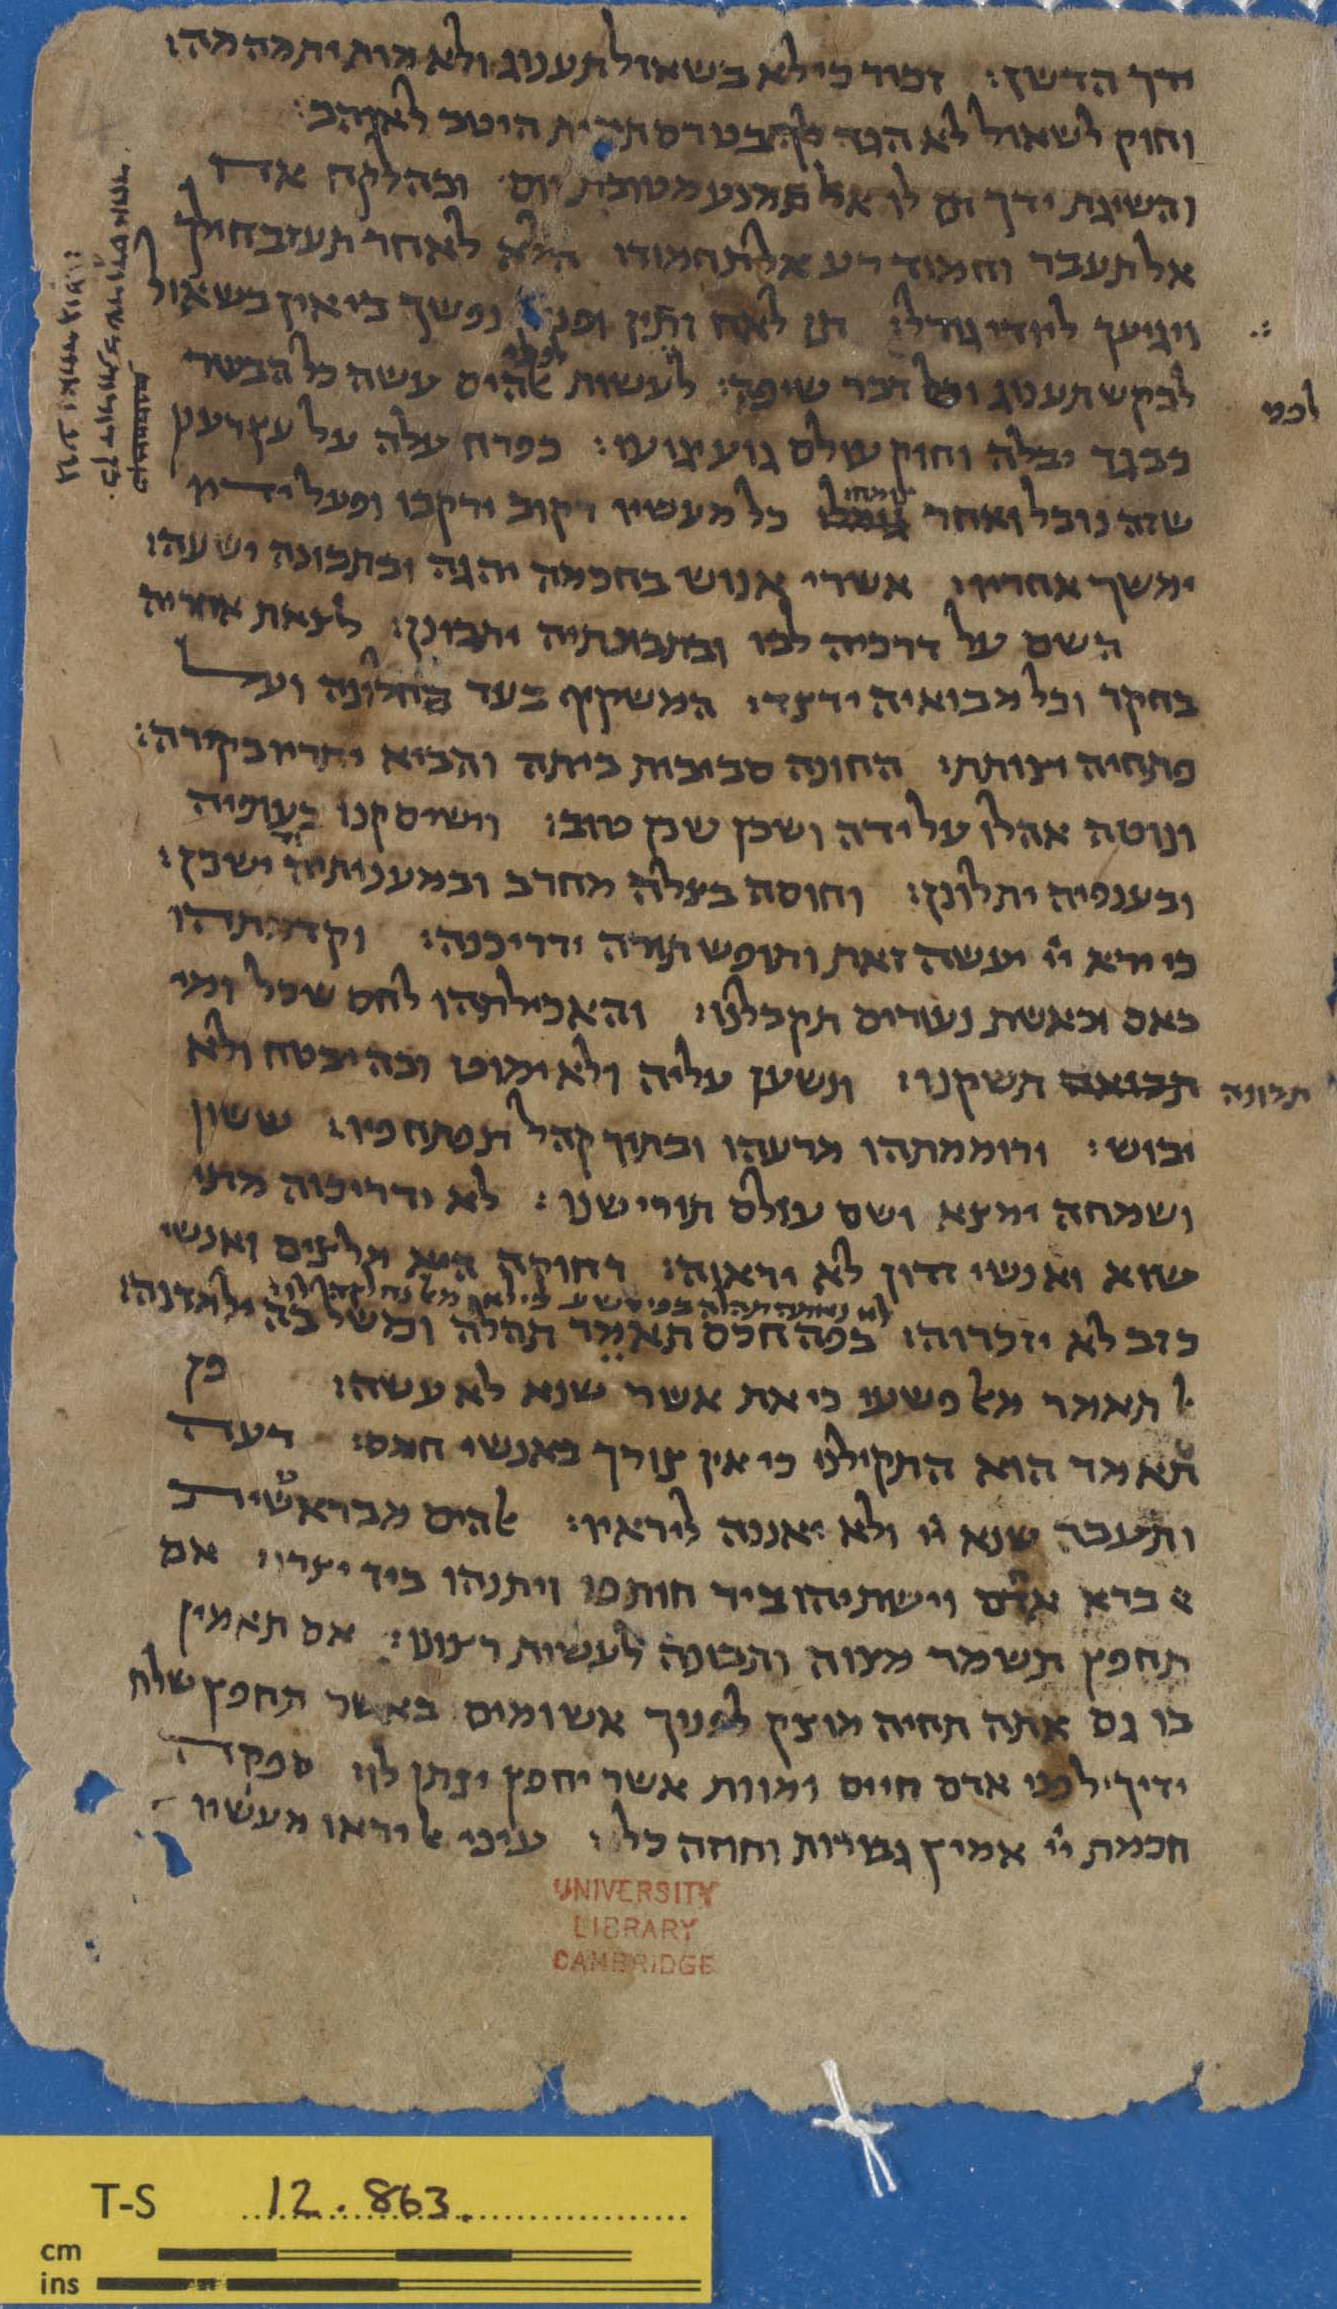 ידך הדשן׃ זכור כי לא בשאול תענוג ולא מות יתמהמה׃
וחוק לשאול לא הגד לך בטרם תמות היטב לאוהב׃
והשיגת ידך תן לו אל תמנע מטובת יום ובהלקח אח
אל תעבר וחמוד רע אל תחמוד הלא לאחר תעזב חילך
ויגיעך ליודי גורל׃ תן לאח ותין ופנק נפשך כי אין בשאול
לבקש תענוג וכל דבר שיפה׃ לעשות לפני אלהים עשה כל הבשר
כבגד יבלה וחוק עולם גוע יגועו׃ כפרח עלה על עץ רענן
שזה נובל ואחר גומל כל מעשיו רקוב ירקבו ופעל ידיו
ימשך אחריו׃ אשרי אנוש בחכמה יהגה ובתבונה ישעה׃
השם על דרכיה לבו ובתבונתיה יתבונן׃ לצאת אחריה
בחקר וכל מבואיה ירצד׃ המשקיף בעד חלונה ועל
פתחיה יצותת׃ החונה סביבות ביתה והביא יתריו בקירה׃
ונוטה אהלו על ידה ושכן שכן טוב׃ וישים קנו בעופיה
ובענפיה יתלונן׃ וחוסה בצלה מחרב ובמענותיה ישכן׃
כי ירא ייי יעשה זאת ותופש תורה ידריכנה׃ וקדמתהו
כאם וכאשת נעורים תקבלנו׃ והאכילתהו לחם שכל ומי
תבואה תשקנו׃ ונשען עליה ולא ימוט ובה יבטח ולא
תבונה
יבוש׃ ורוממתהו מרעהו ובתוך קהל תפתח פיו׃ ששון
ושמחה ימצא ושם עולם תורישנו׃ לא ידריכוה מתי
שוא ואנשי זדון לא יראוה׃ רחוקה היא מלצים ואנשי
לא נאתה תהלה בפי רשע כי לא מאל נחלקה לו
כזב לא יזכרוה׃ בפה חכם תאמר תהלה ומשל בה ילמדנה׃
אל תאמר מאל פשעי כי את אשר שנא לא עשה׃ פן
תאמר הוא התקילני כי אין צורך באנשי חמס׃ רעה
ותעבה שנא ייי ולא יאננה ליראיו׃ אלהים מבראשית
ברא אדם וישתיהו ביד חותפו ויתנהו ביד יצרו׃ אם
תחפץ תשמר מצוה ותבונה לעשות רצונו׃ אם תאמין
בו גם אתה תחיה מוצק לפניך אש ומים באשר תחפץ שלח
ידיך׃ לפני אדם חיים ומוות אשר יחפץ ינתן לו׃ ספקה
חכמת ייי אמיץ גבורות וחוזה כל׃ עיני אל יראו מעשיו
UNIVERSITY
LIBRARY
CAMBRIDGE
T-S 12.863.
cm
ins